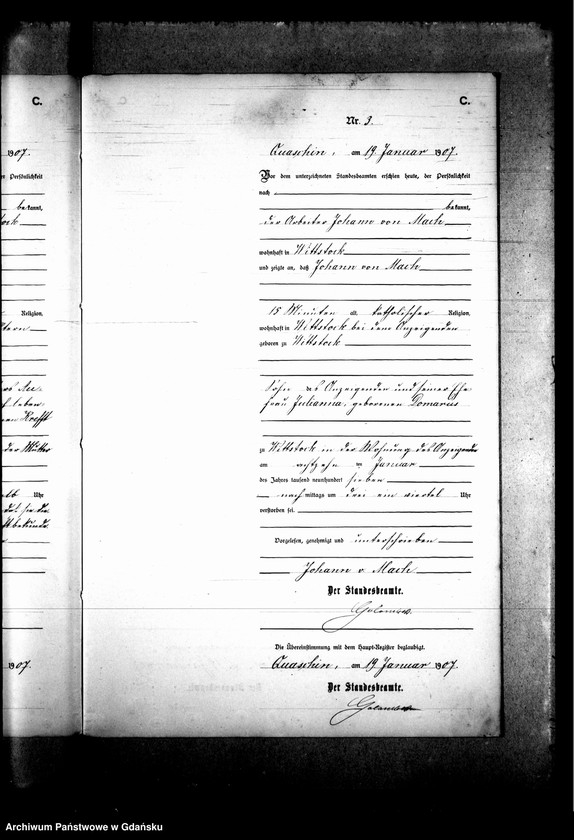 C.
1907.
er Persönlichkeit
bekannt,
tock
Religion,
ltern
Krefft
der Mutter
Uhr
1907.
C.
Nr. 3.
Quaschin, am 19 Januar 1907.
Vor dem unterzeichneten Standesbeamten erschien heute, der Persönlichkeit
nach
bekannt,
der Arbeiter Johann von Mach
wohnhaft in Wittstock
und zeigte an, daß Johann von Mach
15 Minuten alt, katholischer Religion,
wohnhaft in Wittstock bei dem Anzeigenden
geboren zu Wittstock
Sohn des Anzeigenden und seiner Ehe
frau Julianna, geborenen Domarus
zu Wittstock in der Wohnung des Anzeigenden
am achtzehn ten Januar
des Jahres tausend neunhundert sieben
nach mittags um drei ein viertel Uhr
verstorben sei.
Vorgelesen, genehmigt und unterschrieben
Johann v. Mach
Der Standesbeamte.
Die Übereinstimmung mit dem Haupt-Register beglaubigt.
Quaschin, am 19 Januar 1907.
Der Standesbeamte.
Archiwum Państwowe w Gdańsku